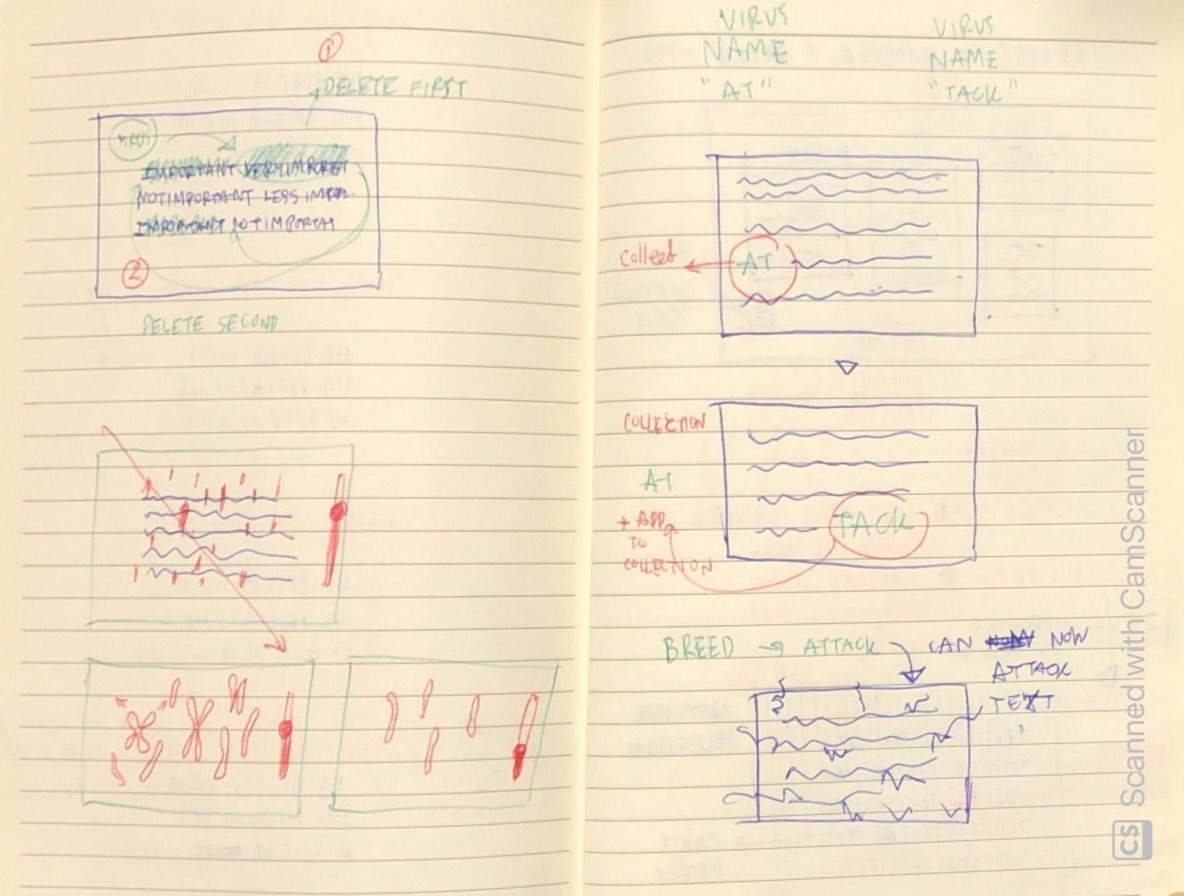 ①
DELETE FIRST
VIRUS
IMPORTANT VERY IMPORTANT
NOTIMPORTANT LESS
IMPORTANT NOTIMPORTANT
②
DELETE SECOND
VIRUS
NAME
"AT"
VIRUS
NAME
"TACK"
Collect
AT
COLLECTION
AT
+ APP
TO
COLLECTION
TACK
BREED → ATTACK
CAN NOW
ATTACK
TEXT
CS Scanned with CamScanner